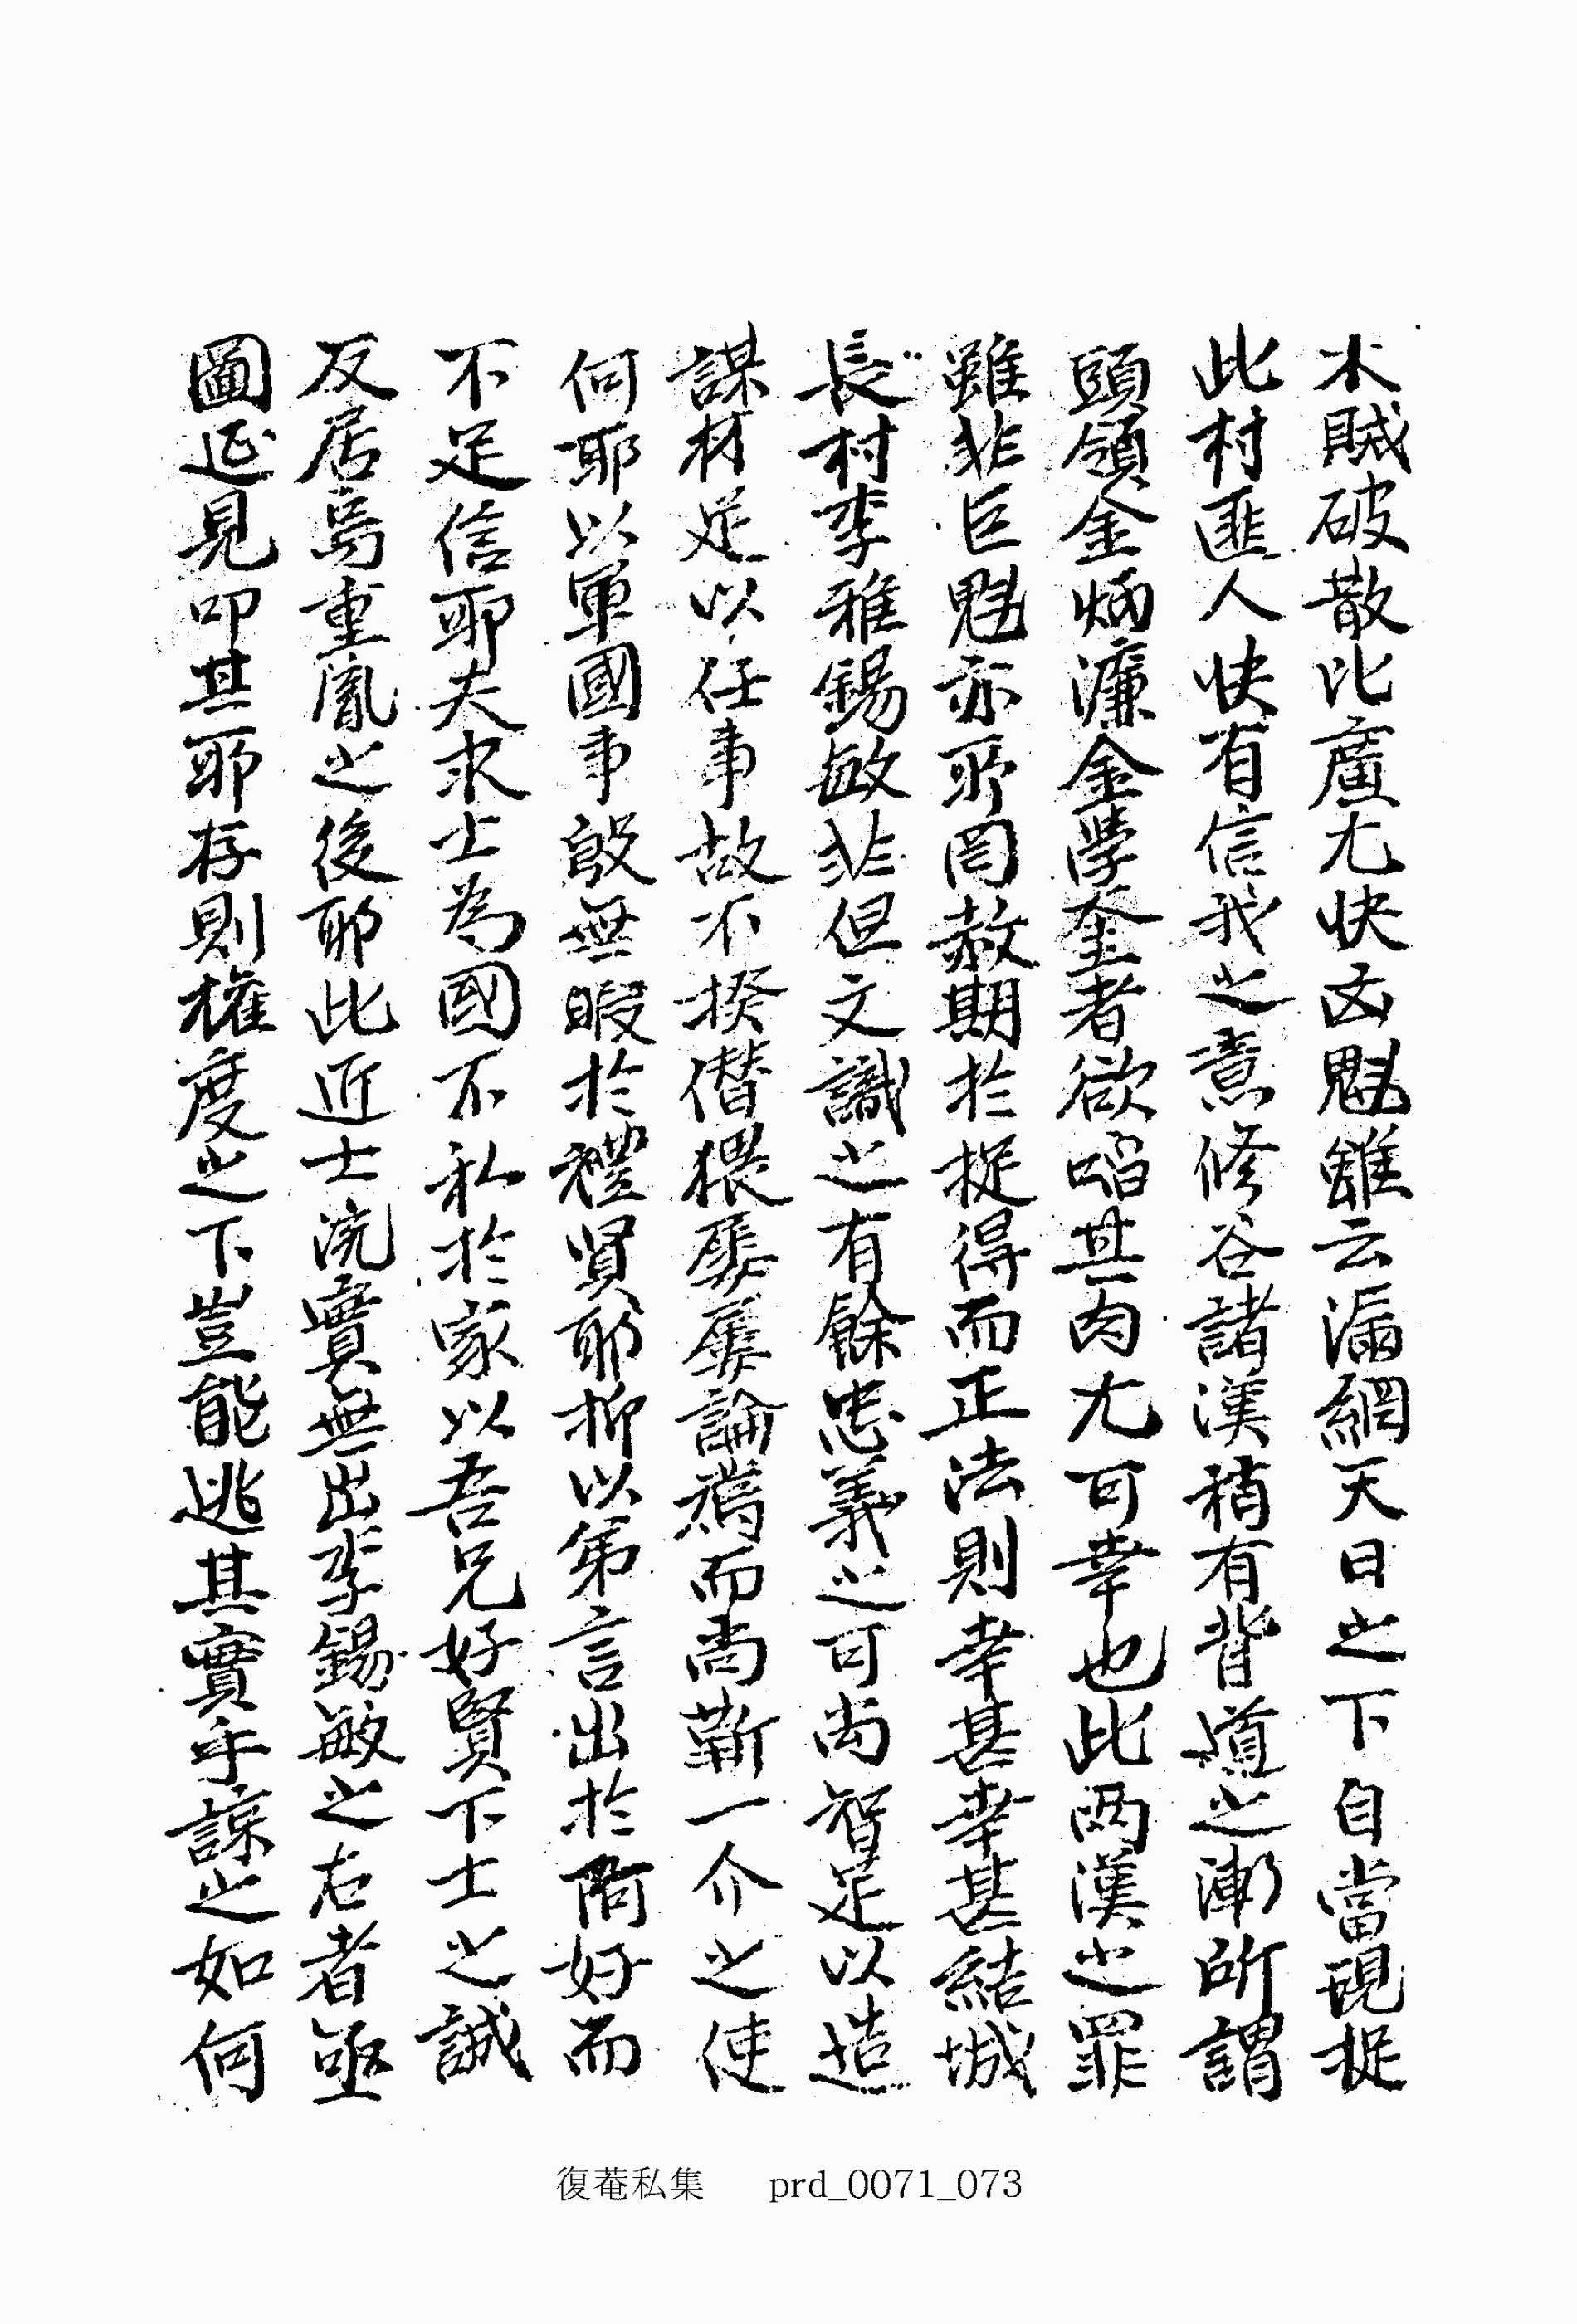 木賊破散比廬尤快凶魁雖云漏網天日之下自當現捉
此村匪人快有信我之意修谷諸漢稍有背道之漸所謂
頭領金炳濂金學奎者欲啗其肉尤可幸也此兩漢之罪
雖非巨魁亦所罔赦期於捉得而正法則幸甚幸甚結城
長村李雅錫敏非但文識之有餘忠義之可尚智足以造
謀材足以任事故不揆僭猥屢屢論薦而尚蘄一介之使
何耶以軍國事殷無暇於禮賢耶抑以弟言出於阿好而
不足信耶夫求士為國不私於家以吾兄好賢下士之誠
反居烏重胤之後耶比近士流實無出李錫敏之右者亟
圖延見叩其所存則權度之下豈能逃其實乎諒之如何
復菴私集 prd_0071_073